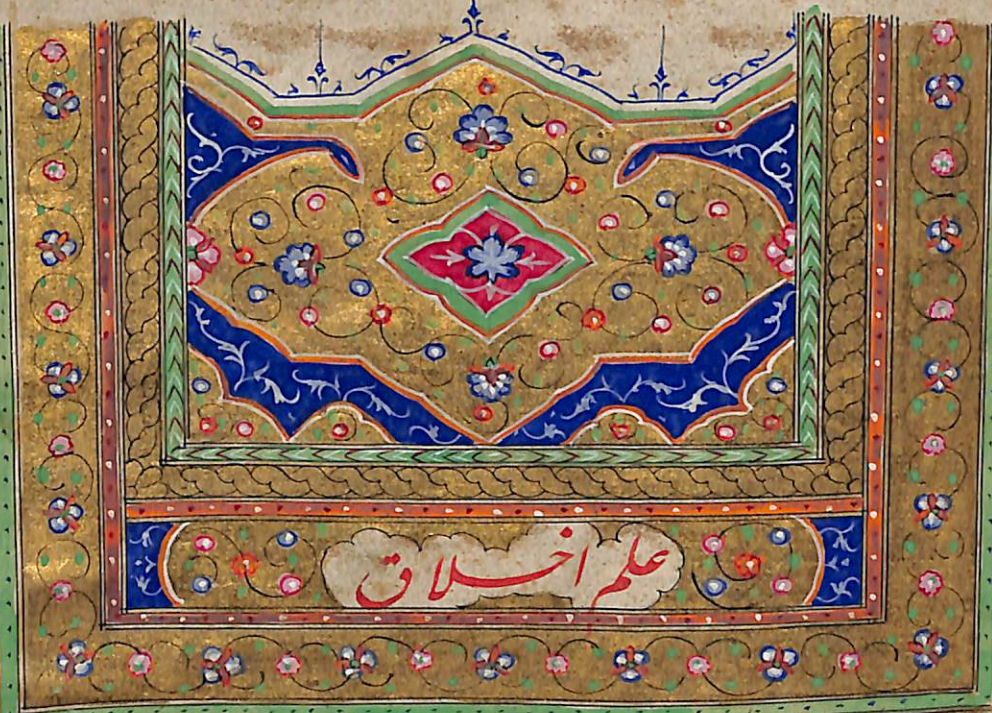 علم اخلاق